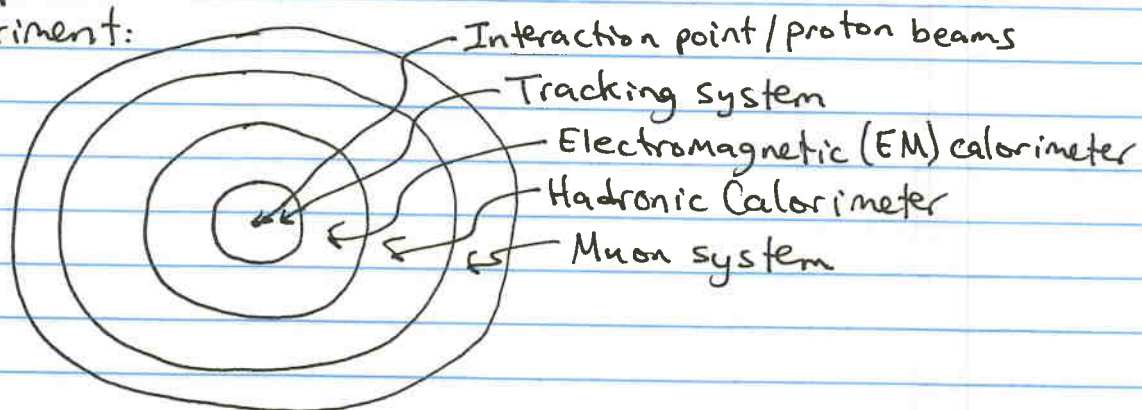 riment:
Interaction point/proton beams
Tracking system
Electromagnetic (EM) calorimeter
Hadronic Calorimeter
Muon system